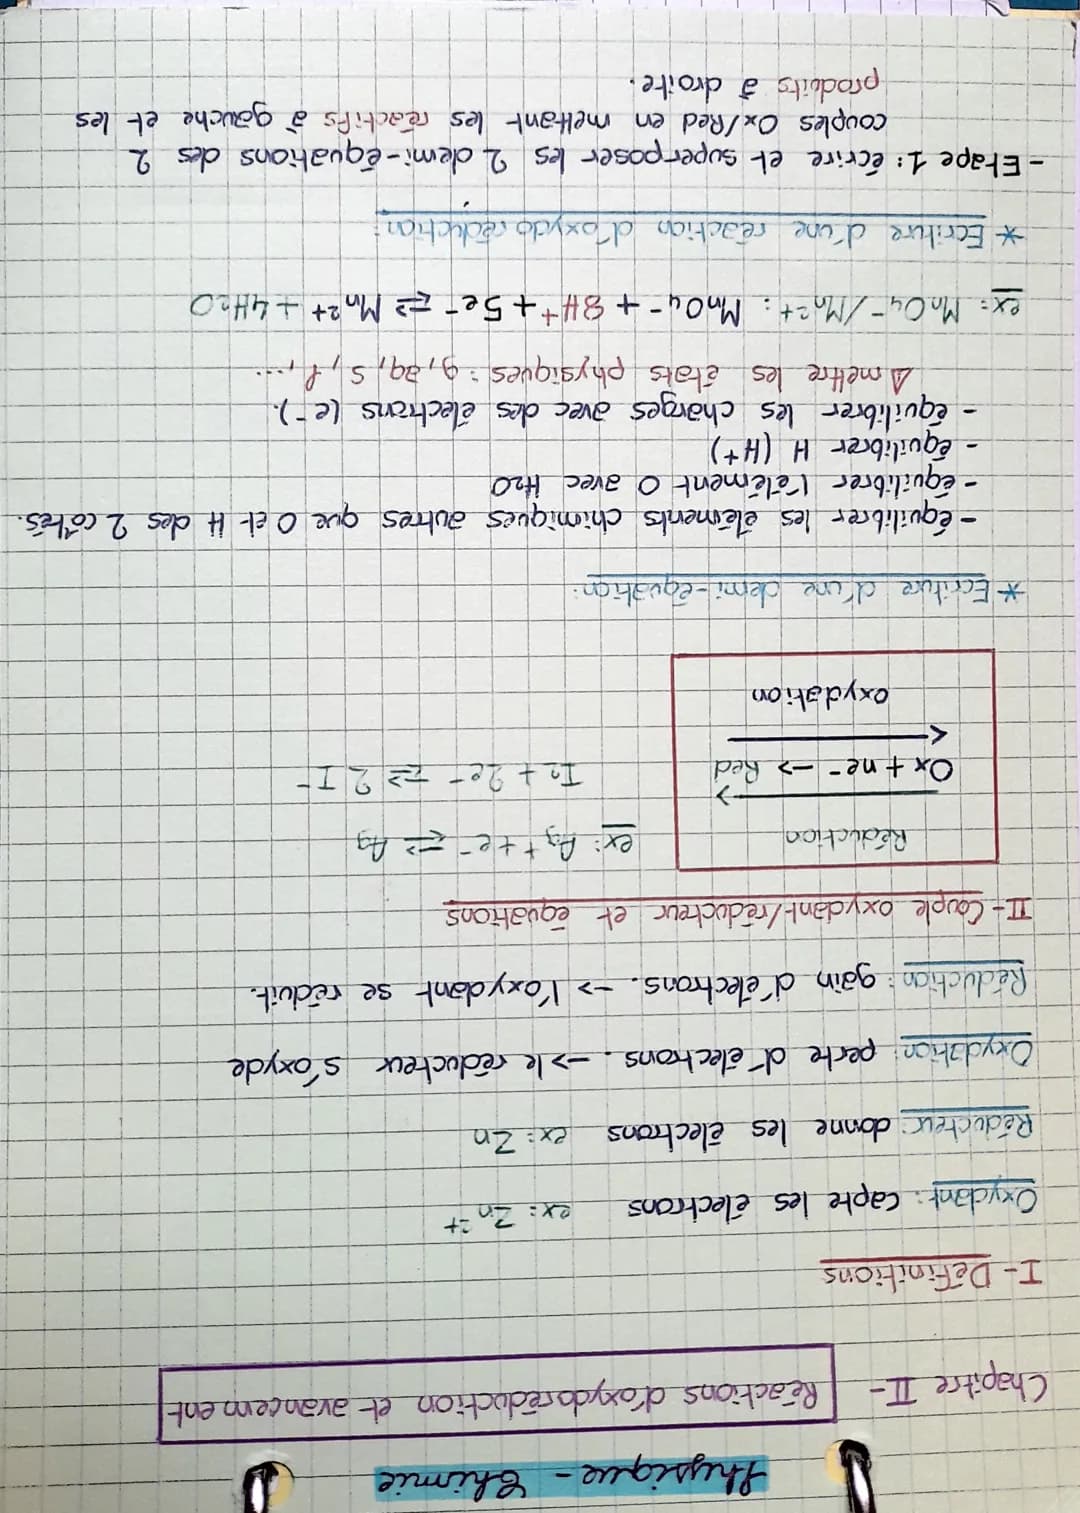 Physique - Chimie
Chapitre II - Réactions d'oxydoréduction et avancement
I- Définitions
Oxydant : capte les électrons ex: Zn²⁺
Réducteur: donne les électrons ex: Zn
Oxydation: perte d'électrons. -> le réducteur s'oxyde
Réduction: gain d'électrons. -> l'oxydant se réduit.
II- Couple oxydant/réducteur et équations
Réduction
Ox + ne⁻ -> Red
oxydation
ex: Ag⁺ + e⁻ ⇄ Ag
I₂ + 2e⁻ ⇄ 2 I⁻
* Ecriture d'une demi-équation:
- équilibrer les éléments chimiques autres que O et H des 2 côtés.
- équilibrer l'élément O avec H₂O
- équilibrer H (H⁺)
- équilibrer les charges avec des électrons (e⁻).
⚠ mettre les états physiques : g, aq, s, l, ...
ex: MnO₄⁻/Mn²⁺: MnO₄⁻ + 8H⁺ + 5e⁻ ⇄ Mn²⁺ + 4H₂O
* Ecriture d'une réaction d'oxydoréduction:
- Etape 1: écrire et superposer les 2 demi-équations des 2
couples Ox/Red en mettant les réactifs à gauche et les
produits à droite.